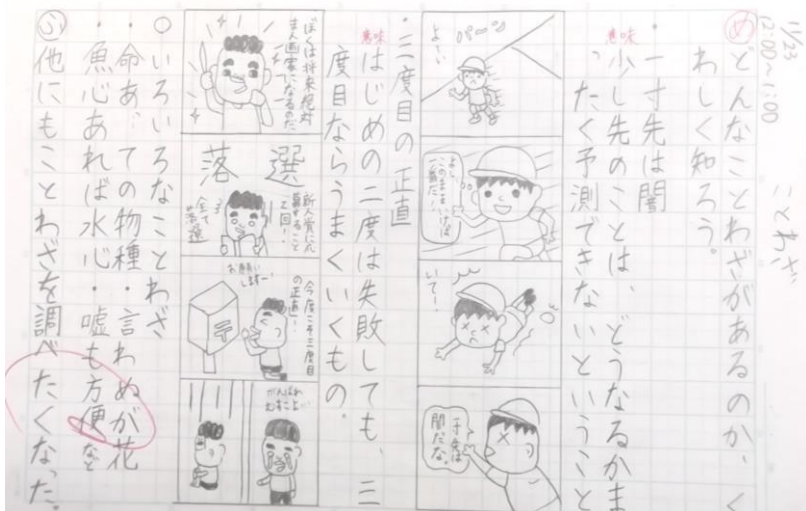 11/23
12:00〜1:00
ことわざ
め どんなことわざがあるのか、く
わしく知ろう。
・一寸先は闇
意味 少し先のことは、どうなるかま
ったく予測できないということ
パーン
よーい
よし、
このままいけば
一番だ!
いてー!
一寸先は
闇だな。
・三度目の正直
意味 はじめの二度は失敗しても、三
度目ならうまくいくもの。
ぼくは将来絶対
まん画家になるのだ。
落選
新人賞に応
募すること
2回!
全て
落選
今度こそ三度目
の正直!
お願い
しますー
がんばれ
むすこよ…
○ いろいろなことわざ
・命あっての物種・言わぬが花
・魚心あれば水心・嘘も方便など
ふ 他にもことわざを調べたくなった。